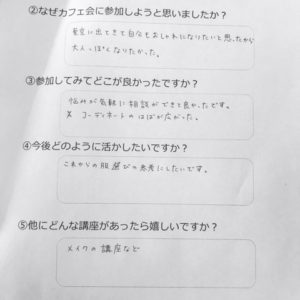 ②なぜカフェ会に参加しようと思いましたか？
東京に出てきて自分もおしゃれになりたいと思ったから
大人っぽくなりたかった。
③参加してみてどこが良かったですか？
悩みが気軽に相談ができて良かったです。
※ コーディネートのはばが広がった。
④今後どのように活かしたいですか？
これからの服選びの参考にしたいです。
⑤他にどんな講座があったら嬉しいですか？
メイクの講座など